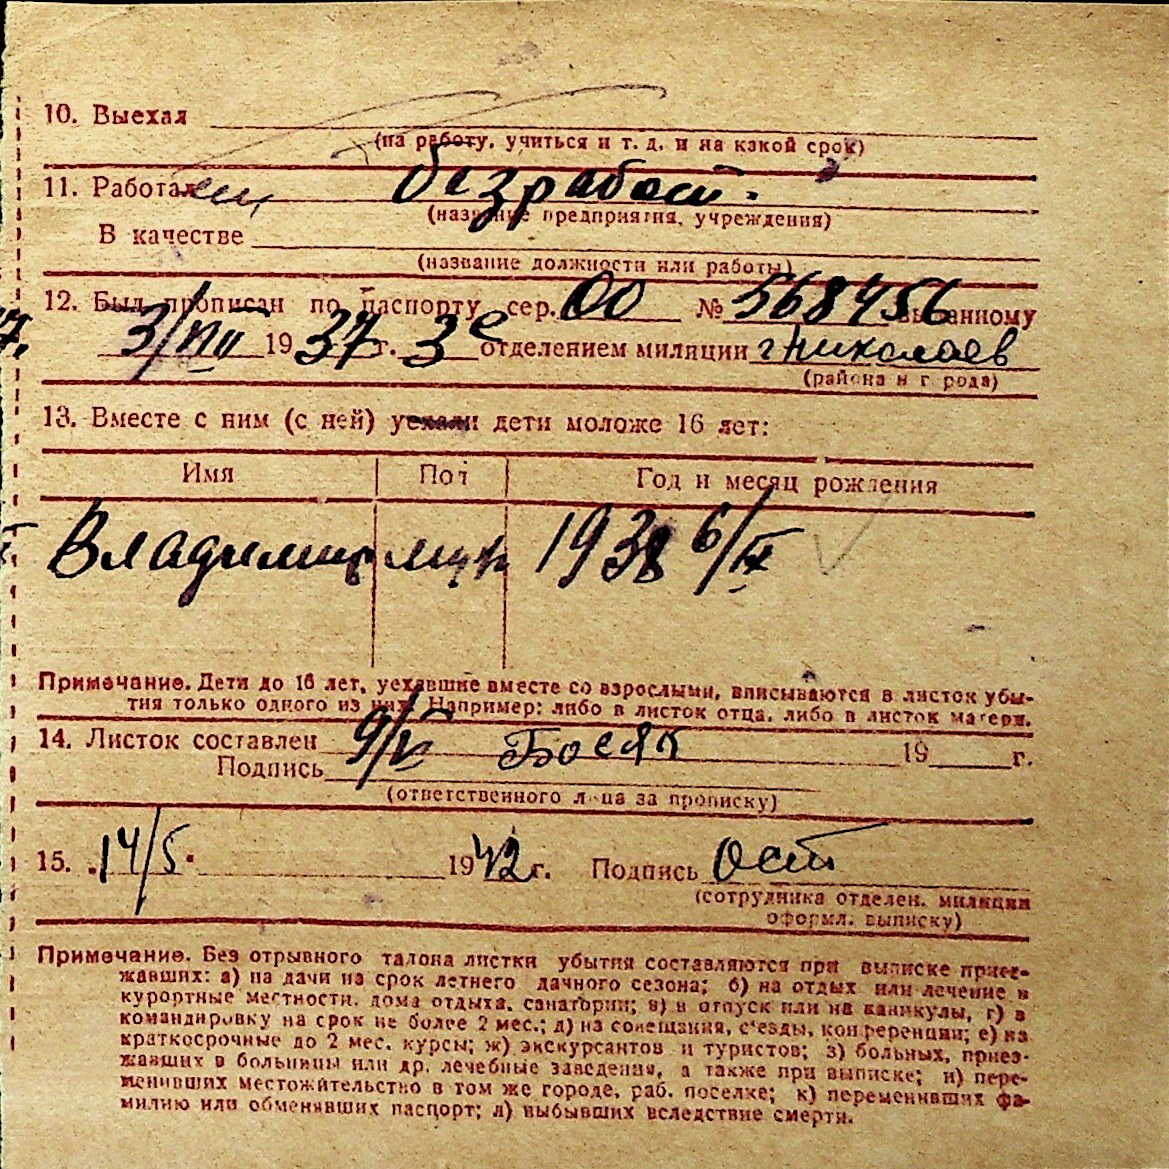 10. Выехал
(на работу, учиться и т. д. и на какой срок)
11. Работал безработ.
(название предприятия, учреждения)
В качестве
(название должности или работы)
12. Был прописан по паспорту сер. ОО № 568456 выданному
3/VIII 1937 г. 3е отделением милиции г Николаев
(района и города)
13. Вместе с ним (с ней) уехали дети моложе 16 лет:
Имя Пол Год и месяц рождения
Владимир муж 1938 6/IX
Примечание. Дети до 16 лет, уехавшие вместе со взрослыми, вписываются в листок убы-
тия только одного из них. Например: либо в листок отца, либо в листок матери.
14. Листок составлен 9/V Босяк 19 г.
Подпись
(ответственного лица за прописку)
15. 14/5. 1942 г. Подпись Ост
(сотрудника отделен. милиции
оформл. выписку)
Примечание. Без отрывного талона листки убытия составляются при выписке приез-
жавших: а) на дачи на срок летнего дачного сезона; б) на отдых или лечение в
курортные местности, дома отдыха, санатории; в) в отпуск или на каникулы, г) в
командировку на срок не более 2 мес.; д) на совещания, съезды, конференции; е) на
краткосрочные до 2 мес. курсы; ж) экскурсантов и туристов; з) больных, приез-
жавших в больницы или др. лечебные заведения, а также при выписке; и) пере-
менивших местожительство в том же городе, раб. поселке; к) переменивших фа-
милию или обменявших паспорт; л) выбывших вследствие смерти.